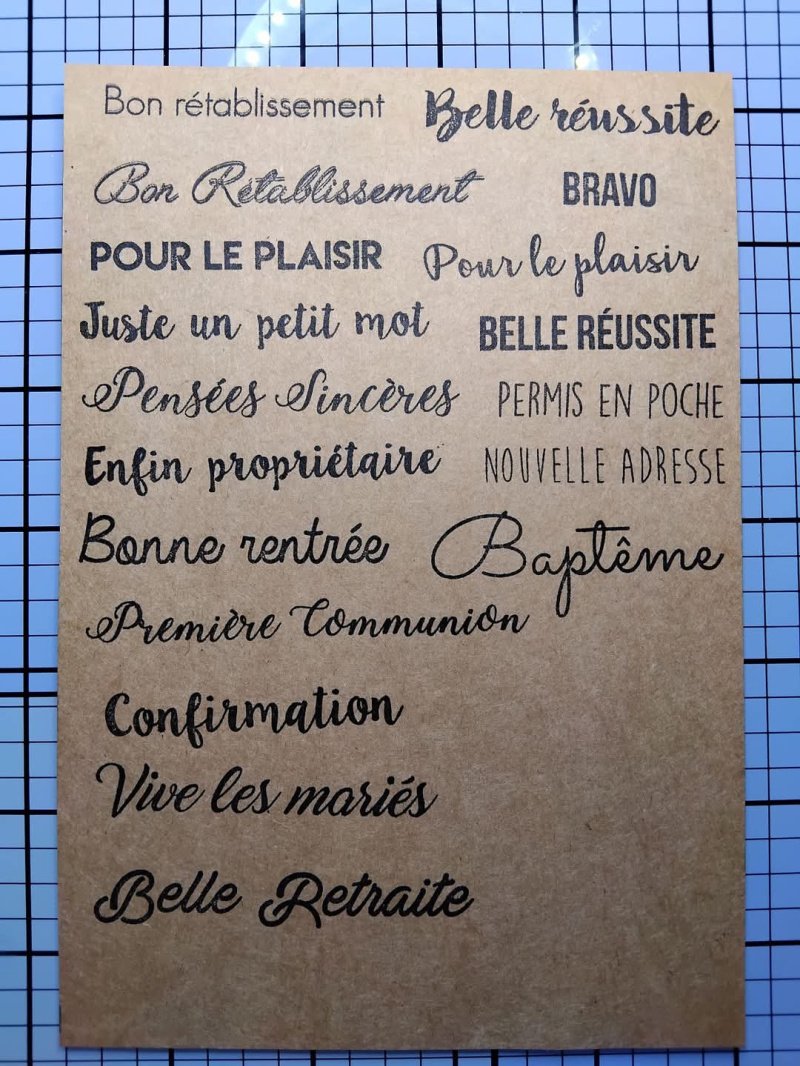 Bon rétablissement
Belle réussite
Bon Rétablissement
BRAVO
POUR LE PLAISIR
Pour le plaisir
Juste un petit mot
BELLE RÉUSSITE
Pensées Sincères
PERMIS EN POCHE
Enfin propriétaire
NOUVELLE ADRESSE
Bonne rentrée
Baptême
Première Communion
Confirmation
Vive les mariés
Belle Retraite